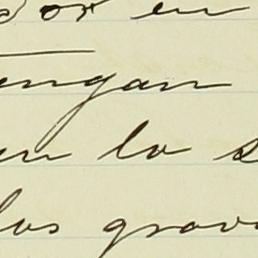 dor en
tengan
en lo s
los grava